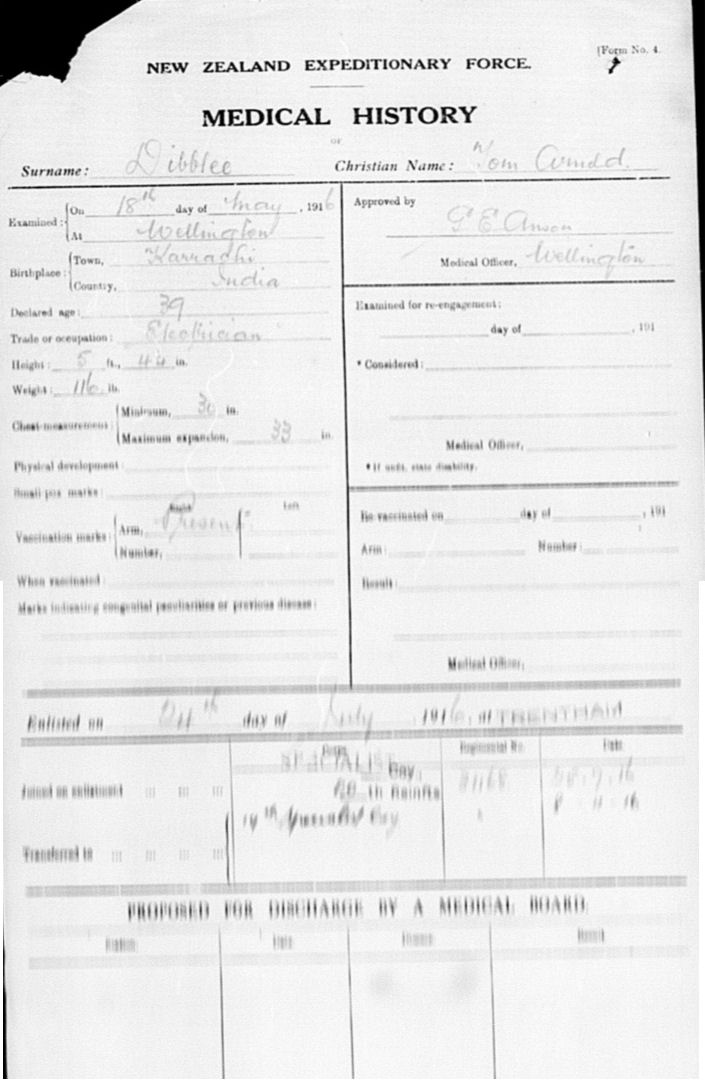 [Form No. 4.
NEW ZEALAND EXPEDITIONARY FORCE.
MEDICAL HISTORY
OF
Surname: Dibblee Christian Name: Tom
Examined: On 18th day of May, 1916
At Wellington
Birthplace: Town, Karrachi
Country, India
Declared age: 39
Trade or occupation: Electrician
Height: 5 ft., 4¼ in.
Weight: 116 lb.
Chest-measurement: Minimum, 30 in.
Maximum expansion, 33 in.
Physical development:
Small pox marks:
Right Left
Vaccination marks: Arm, Present
Number,
When vaccinated:
Marks indicating congenital peculiarities or previous disease:
Approved by
G E Anson
Medical Officer, Wellington
Examined for re-engagement:
day of , 191
* Considered:
Medical Officer,
* If unfit, state disability.
Re-vaccinated on day of , 191
Arm: Number:
Result:
Medical Officer,
Enlisted on 24th day of July, 1916, at TRENTHAM
Corps Regimental No. Date
SPECIALIST Coy.
Joined on enlistment 20 th Reinfts
Transferred to 19th Specialist Coy 8 11 16
PROPOSED FOR DISCHARGE BY A MEDICAL BOARD.
Station Date Disease Result